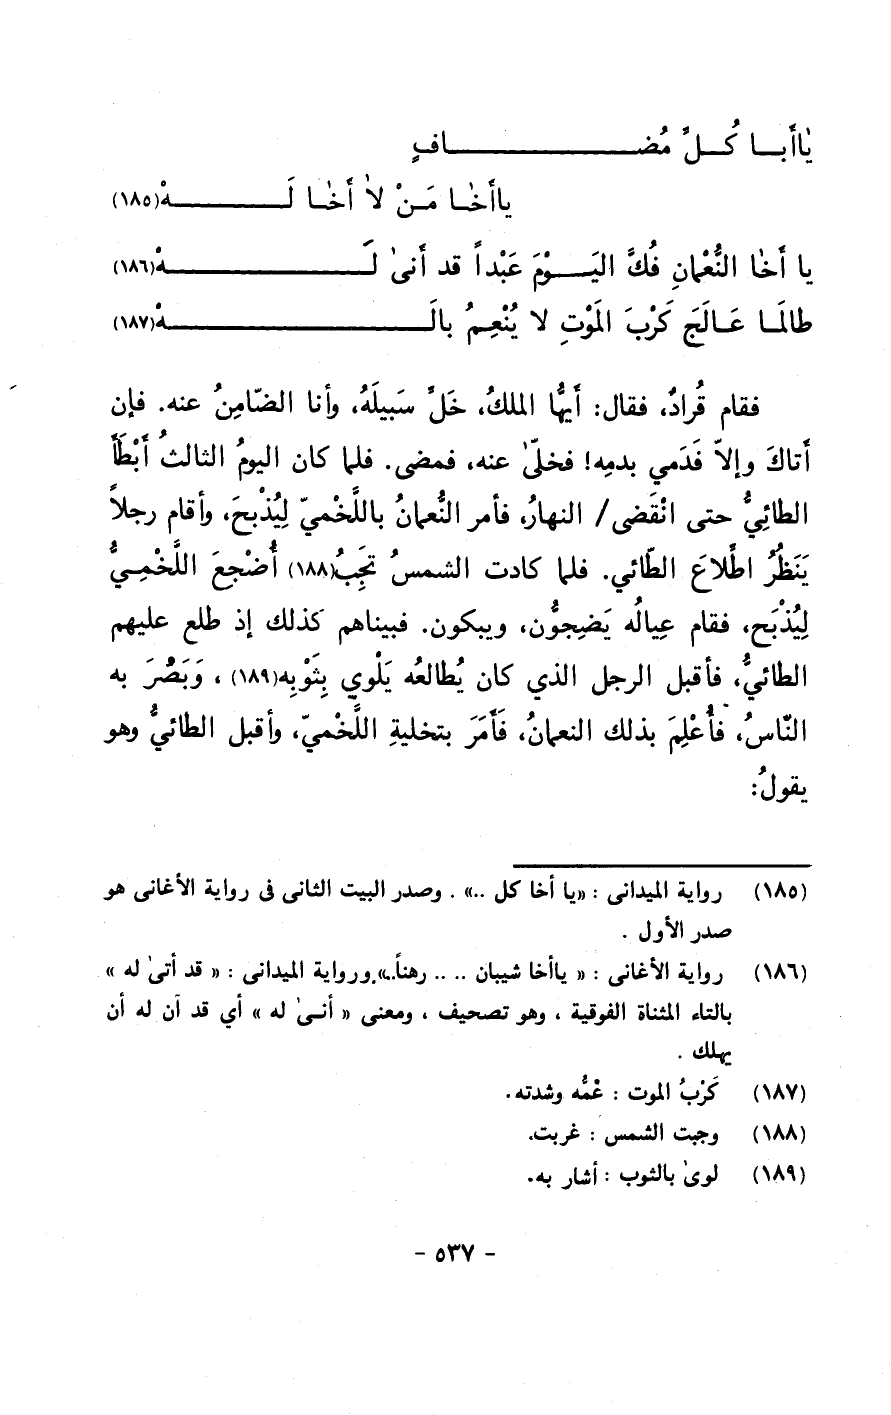 يٰاأَبـــا كُـــلِّ مُضـــــــــــــافٍ
ياأَخٰـا مَـنْ لاٰ أَخٰـا لَــــــــهْ(١٨٥)
يا أَخٰا النُّعْمانِ فُكَّ اليَـــوْمَ عَبْداً قد أَنىٰ لَــــــــــــهْ(١٨٦)
طالَمـا عَـالَجَ كَرْبَ المَوْتِ لا يُنْعِـمُ بالَــــــــــــهْ(١٨٧)
فقام قُرادٌ، فقال: أَيهُّا الملكُ، خَلِّ سَبيلَهُ، وأنا الضّامِنُ عنه. فإن
أَتاكَ وإلاّ فَدَمي بدمِه! فخلىّٰ عنه، فمضى. فلما كان اليومُ الثالثُ أَبْطَأَ
الطائِيُّ حتى انْقَضى/ النهارُ، فأمر النُّعمانُ باللَّخْميّ لِيُذْبحَ، وأقام رجلاً
يَنَظُرُ اطْلاعَ الطّائي. فلما كادت الشمسُ تجَبُ(١٨٨) أُضْجعَ اللَّخْمِيُّ
لِيُذْبَح، فقام عِيالُه يَضِجوُّن، ويبكون. فبيناهم كذلك إذ طلع عليهم
الطائيُّ، فأقبل الرجل الذي كان يُطالعُه يَلْوي بِثَوْبِه(١٨٩)، وَبَصُرَ به
النّاسُ، فأُعْلِمَ بذلك النعمانُ، فَأَمَرَ بتخليةِ اللَّخْميّ، وأقبل الطائيُّ وهو
يقولُ:
(١٨٥) رواية الميدانى : «يا أخا كل ..» . وصدر البيت الثانى فى رواية الأغانى هو
صدر الأول .
(١٨٦) رواية الأغانى : « ياأخا شيبان .. .. رهناً..» ورواية الميدانى : « قد أتىٰ له »
بالتاء المثناة الفوقية ، وهو تصحيف ، ومعنى « أنـىٰ له » أي قد آن له أن
يهلك .
(١٨٧) كَرْبُ الموت : غْمُّه وشدته.
(١٨٨) وجبت الشمس : غربت.
(١٨٩) لوىٰ بالثوب : أشار به.
- ٥٣٧ -